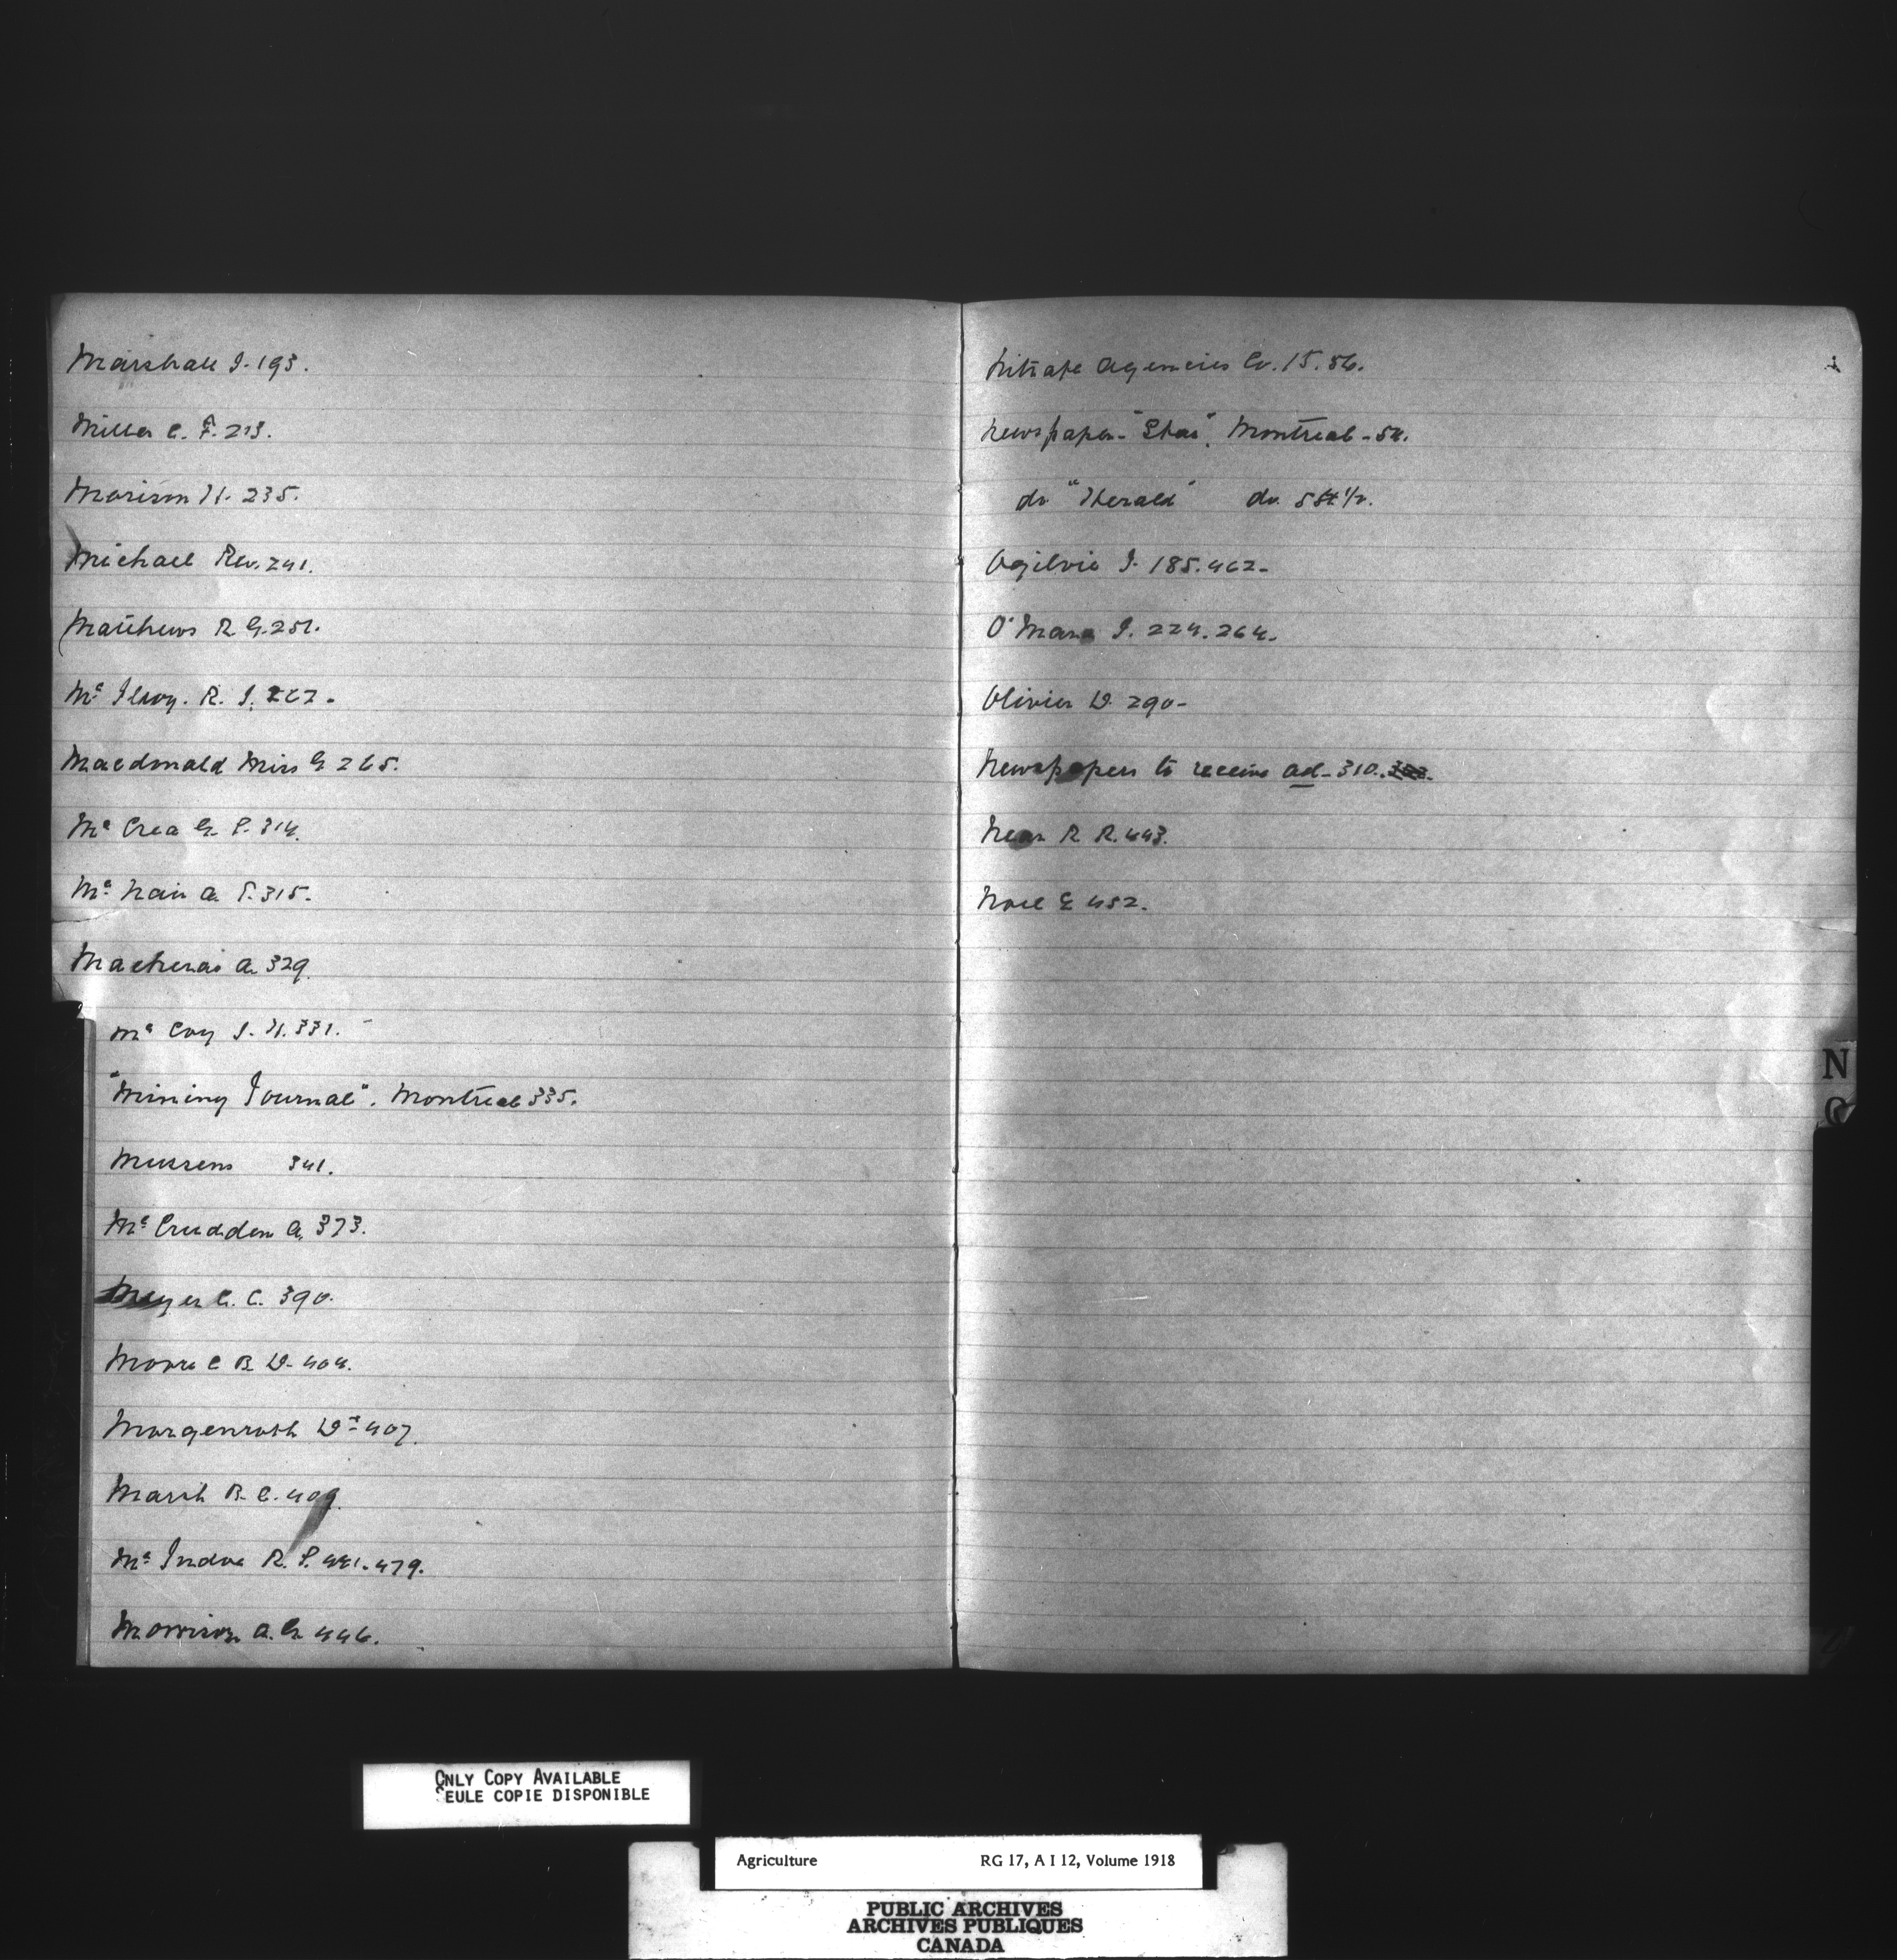 Marshall J. 193.
Miller C. F. 213.
Morison H. 235.
Michael Rev. 241.
Matthews R. G. 251.
Mc Ilroy. R. J. 262.
Macdonald Miss G 265.
Mc Crea G. P. 314.
Mc Nair A. P. 315.
Mackenzie A. 329.
Mc Coy J. H. 331.
"Mining Journal". Montreal 335.
Mussens 341.
Mc Crudden A. 373.
Meyer G. C. 390.
Moore C B D. 404.
Morgenroth Dr 407.
Marsh B. C. 409.
Mc Indoe R. P. 441. 479.
Morrison A. G. 446.
Nitrate Agencies Co. 15. 56.
Newspaper "Star", Montreal - 54.
do "Herald" do 54 1/2.
Ogilvie J. 185. 462.
O'Mara J. 224. 264.
Olivier D. 290.
Newspapers to receive ad. 310.
Near R R. 443.
Noel E 452.
N
O
ONLY COPY AVAILABLE
SEULE COPIE DISPONIBLE
Agriculture RG 17, A I 12, Volume 1918
PUBLIC ARCHIVES
ARCHIVES PUBLIQUES
CANADA